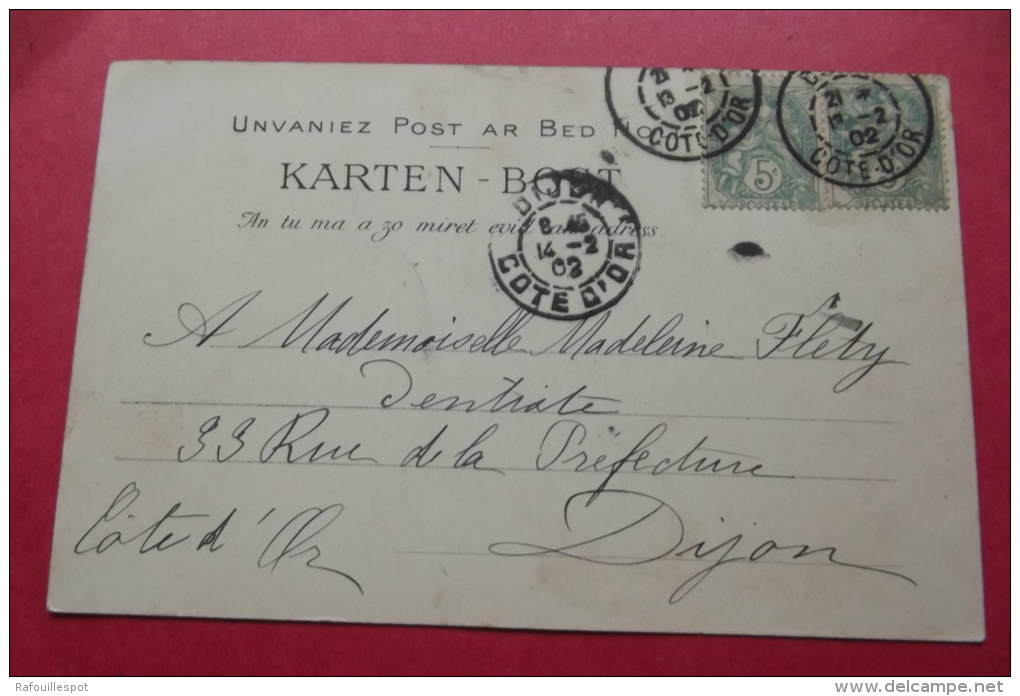 UNVANIEZ POST AR BED
KARTEN - BOST
An tu ma a zo miret evit an adress.
21 *
13 -2
02
CÔTE-D'OR
21 *
13 -2
02
CÔTE-D'OR
5c
POSTES
POSTES
DIJON
8
14 -2
02
COTE D'OR
A Mademoiselle Madeleine Fléty
Dentiste
33 Rue de la Préfecture
Côte d'Or Dijon
Rafouillespot
delcampe.net